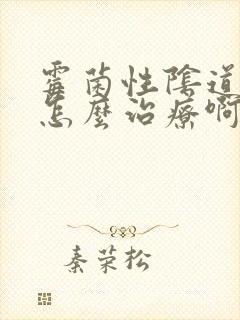 霉菌性陰道
怎麼治療啊
秦荣松